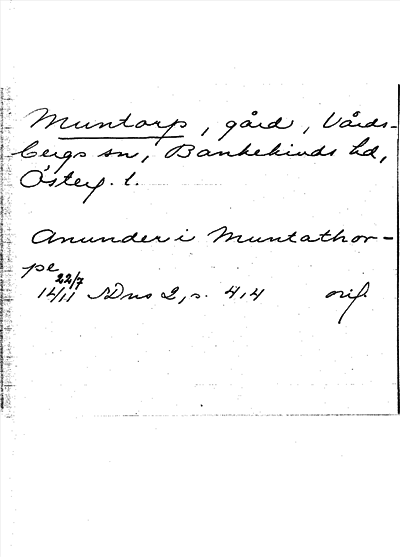 Muntorp, gård, Vårds-
bergs sn, Bankekinds hd,
Österg. l.
Anunder i Muntathor-
pe
22/7
14/11 SDns 2, s. 414 orig.